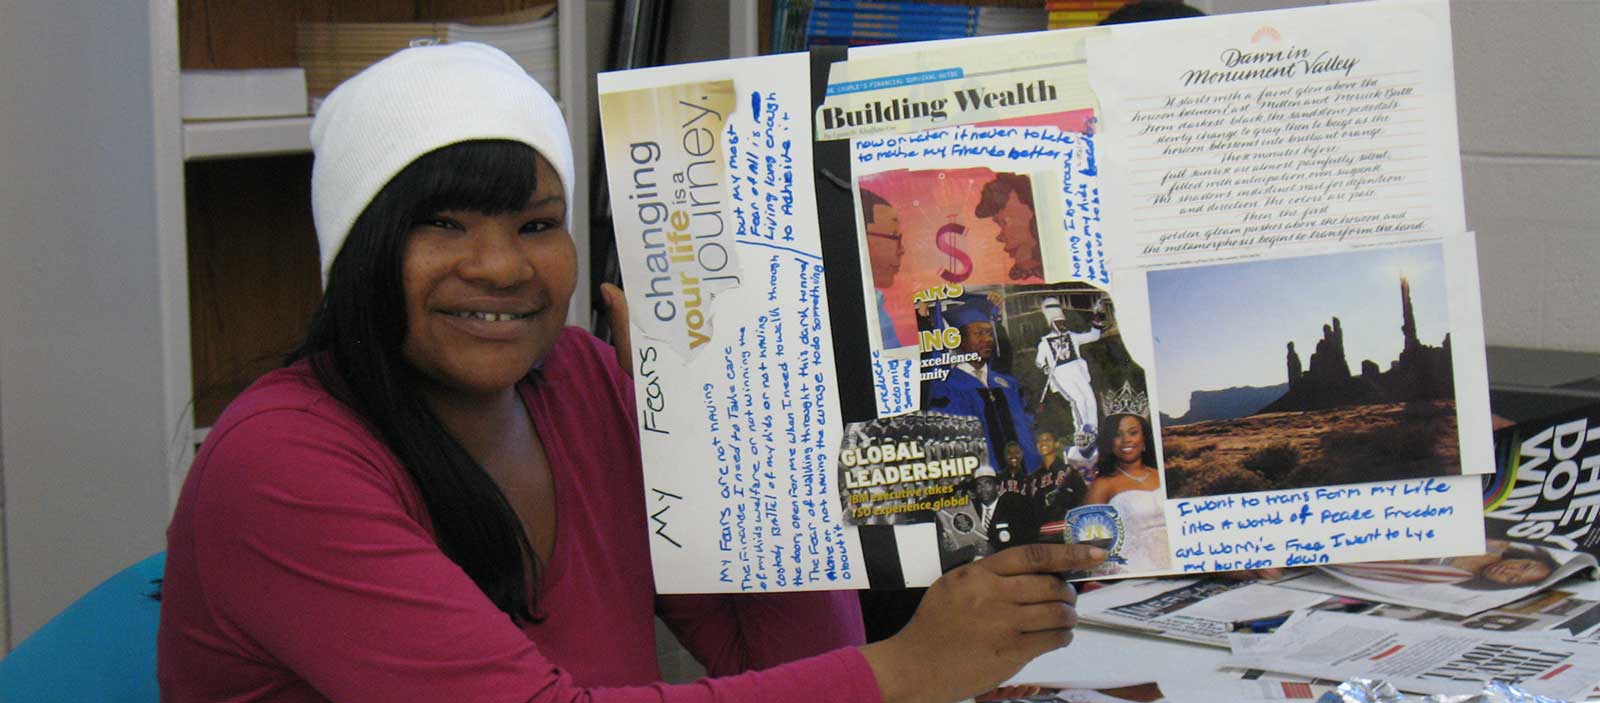 changing
your life is a
journey.
My Fears
but my most
Fear of All is
Living long enough
to Acheive it
My Fears are not having
The Finance I need to Take care
of my kids welfare or not winning the
Custody BATTEl of my kids or not having
the doors open For me when I need to walk through
The Fear of walking throught this dark tunnel
Alone or not having the curage to do something
about it
THE COUPLE'S FINANCIAL SURVIVAL GUIDE
Building Wealth
now or Later it never to Late
to make my Finances better
hoping I be Around
to see my kids
come to be
$
ING
excellence,
unity
becoming
someone
GLOBAL
LEADERSHIP
IBM executive takes
TSU experience global
100
Dawn in
Monument Valley
It starts with a faint glow above the
horizon between East Mitten and Merrick Butte.
From darkest black, the sandstone pedestals
slowly change to gray then to beige as the
horizon blossoms into brilliant orange.
The minutes before
full sunrise are almost painfully silent,
filled with anticipation, even suspense.
The shadows, indistinct, wait for definition
and direction. The colors are pale.
Then the first
golden gleam pushes above the horizon and
the metamorphosis begins to transform the land.
I want to trans Form my Life
into A world of Peace Freedom
and Worrie Free I want to Lye
my burden down
THEY
DO IS
WIN